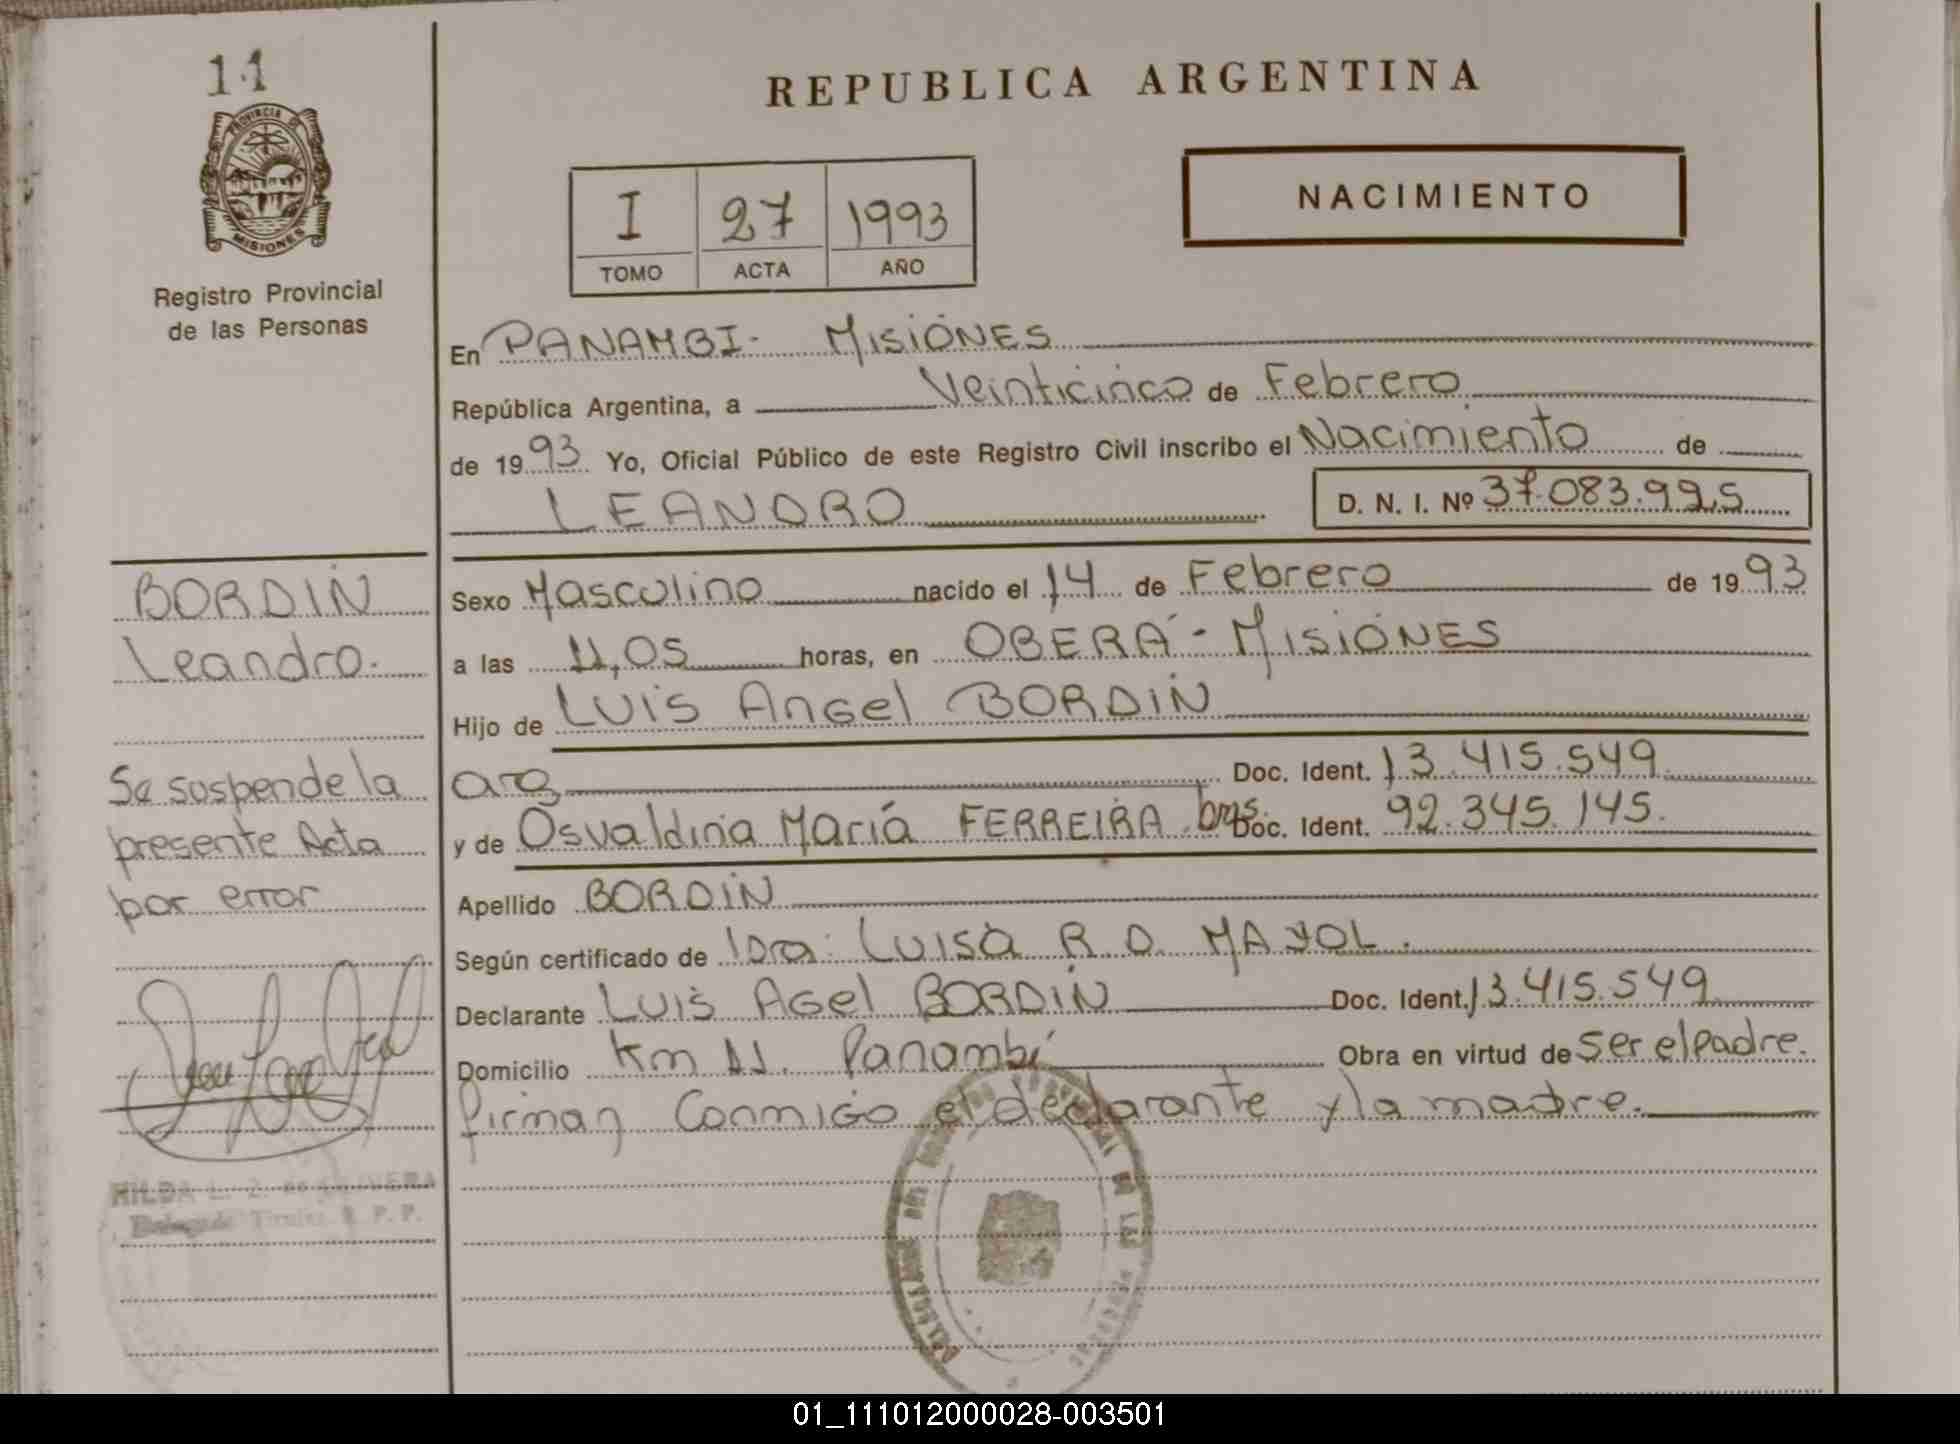 11
PROVINCIA DE
MISIONES
Registro Provincial
de las Personas
REPUBLICA ARGENTINA
I 27 1993
TOMO ACTA AÑO
NACIMIENTO
En PANAMBI - MISIONES
República Argentina, a Veinticinco de Febrero
de 1993 Yo, Oficial Público de este Registro Civil inscribo el Nacimiento de
LEANDRO D. N. I. Nº 37.083.995
BORDIN
Leandro.
Se suspende la
presente Acta
por error
HILDA
Sexo Masculino nacido el 14 de Febrero de 1993
a las 11,05 horas, en OBERÁ - MISIONES
Hijo de LUIS Angel BORDIN
arg Doc. Ident. 13.415.549
y de Osvaldina María FERREIRA bras. Doc. Ident. 92.345.145.
Apellido BORDIN
Según certificado de Dra. LUISA R. D. MAYOL.
Declarante LUIS AGel BORDIN Doc. Ident. 13.415.549
Domicilio Km 11. Panambí Obra en virtud de ser el padre.
firman conmigo el declarante y la madre.
01_111012000028-003501